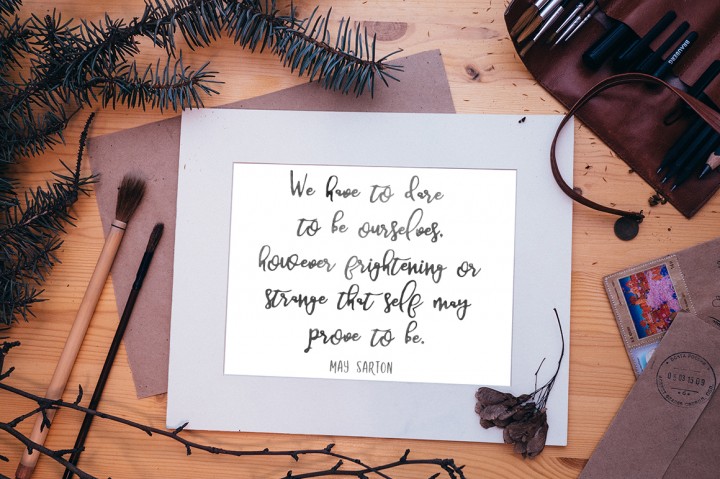 We have to dare
to be ourselves,
however frightening or
strange that self may
prove to be.
MAY SARTON